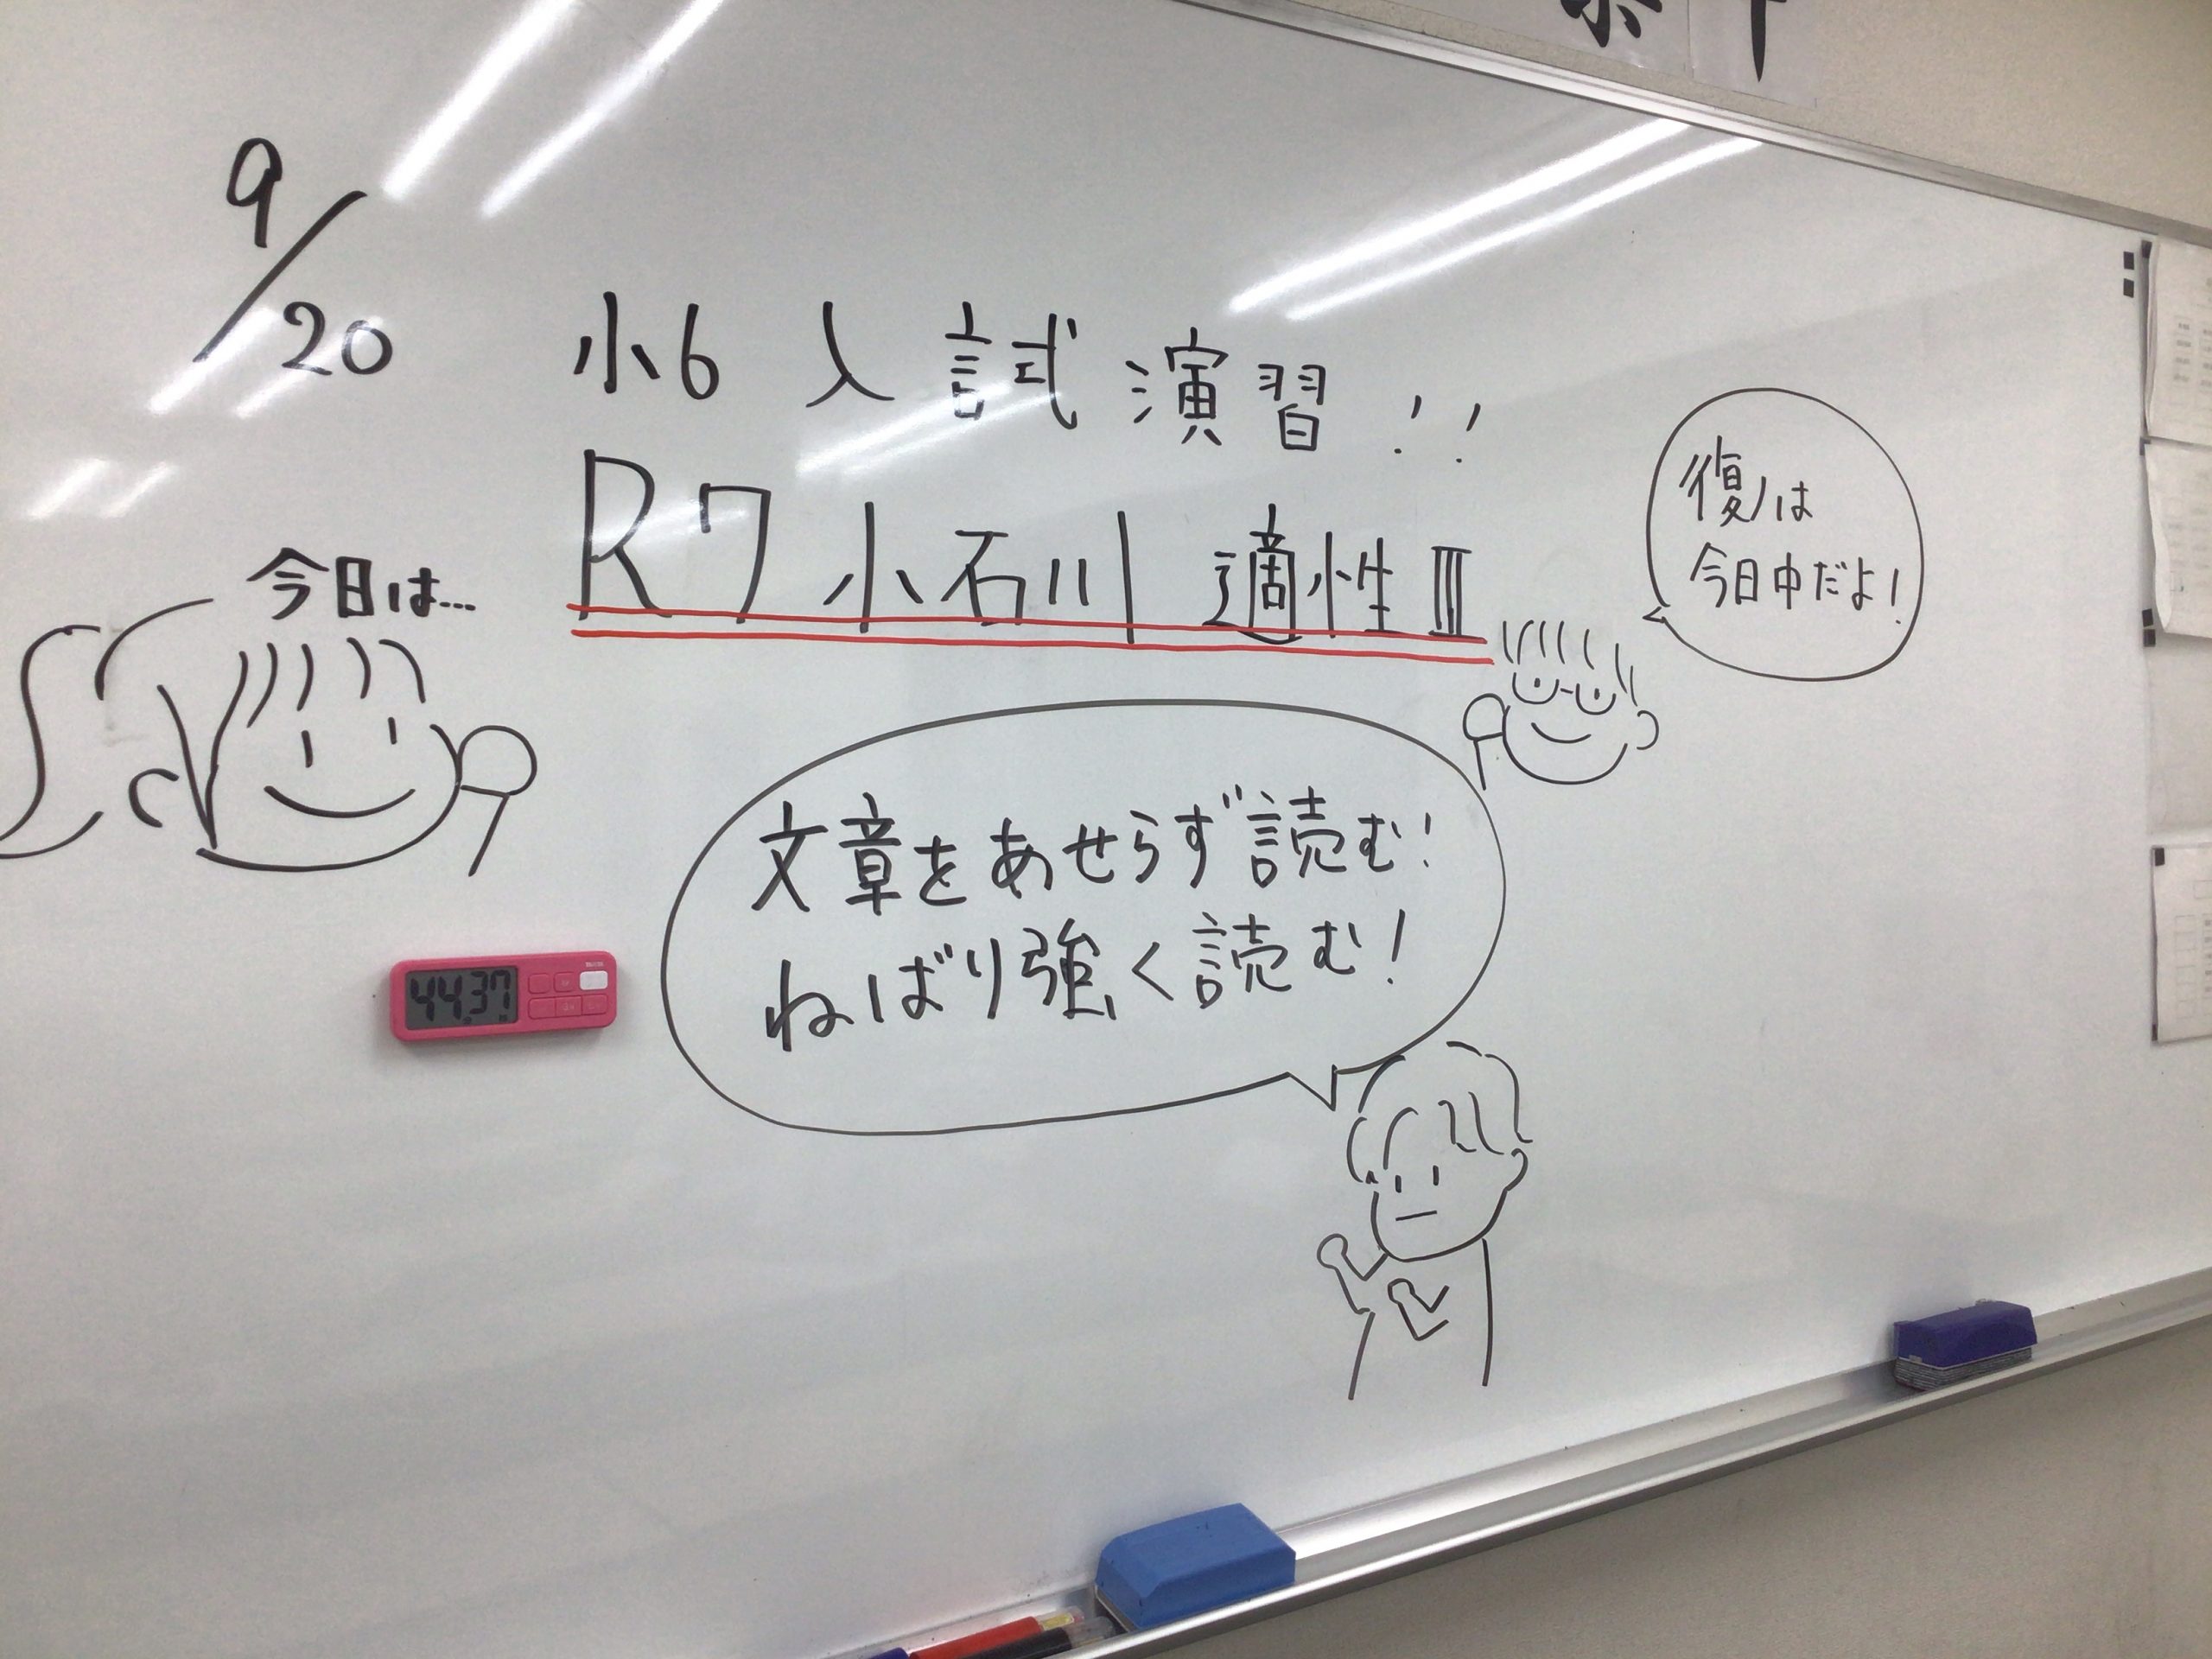 9/20
小6 入試演習!!
今日は...
R7 小石川 適性Ⅲ
復ノは
今日中だよ!
文章をあせらず読む!
ねばり強く読む!
44.37